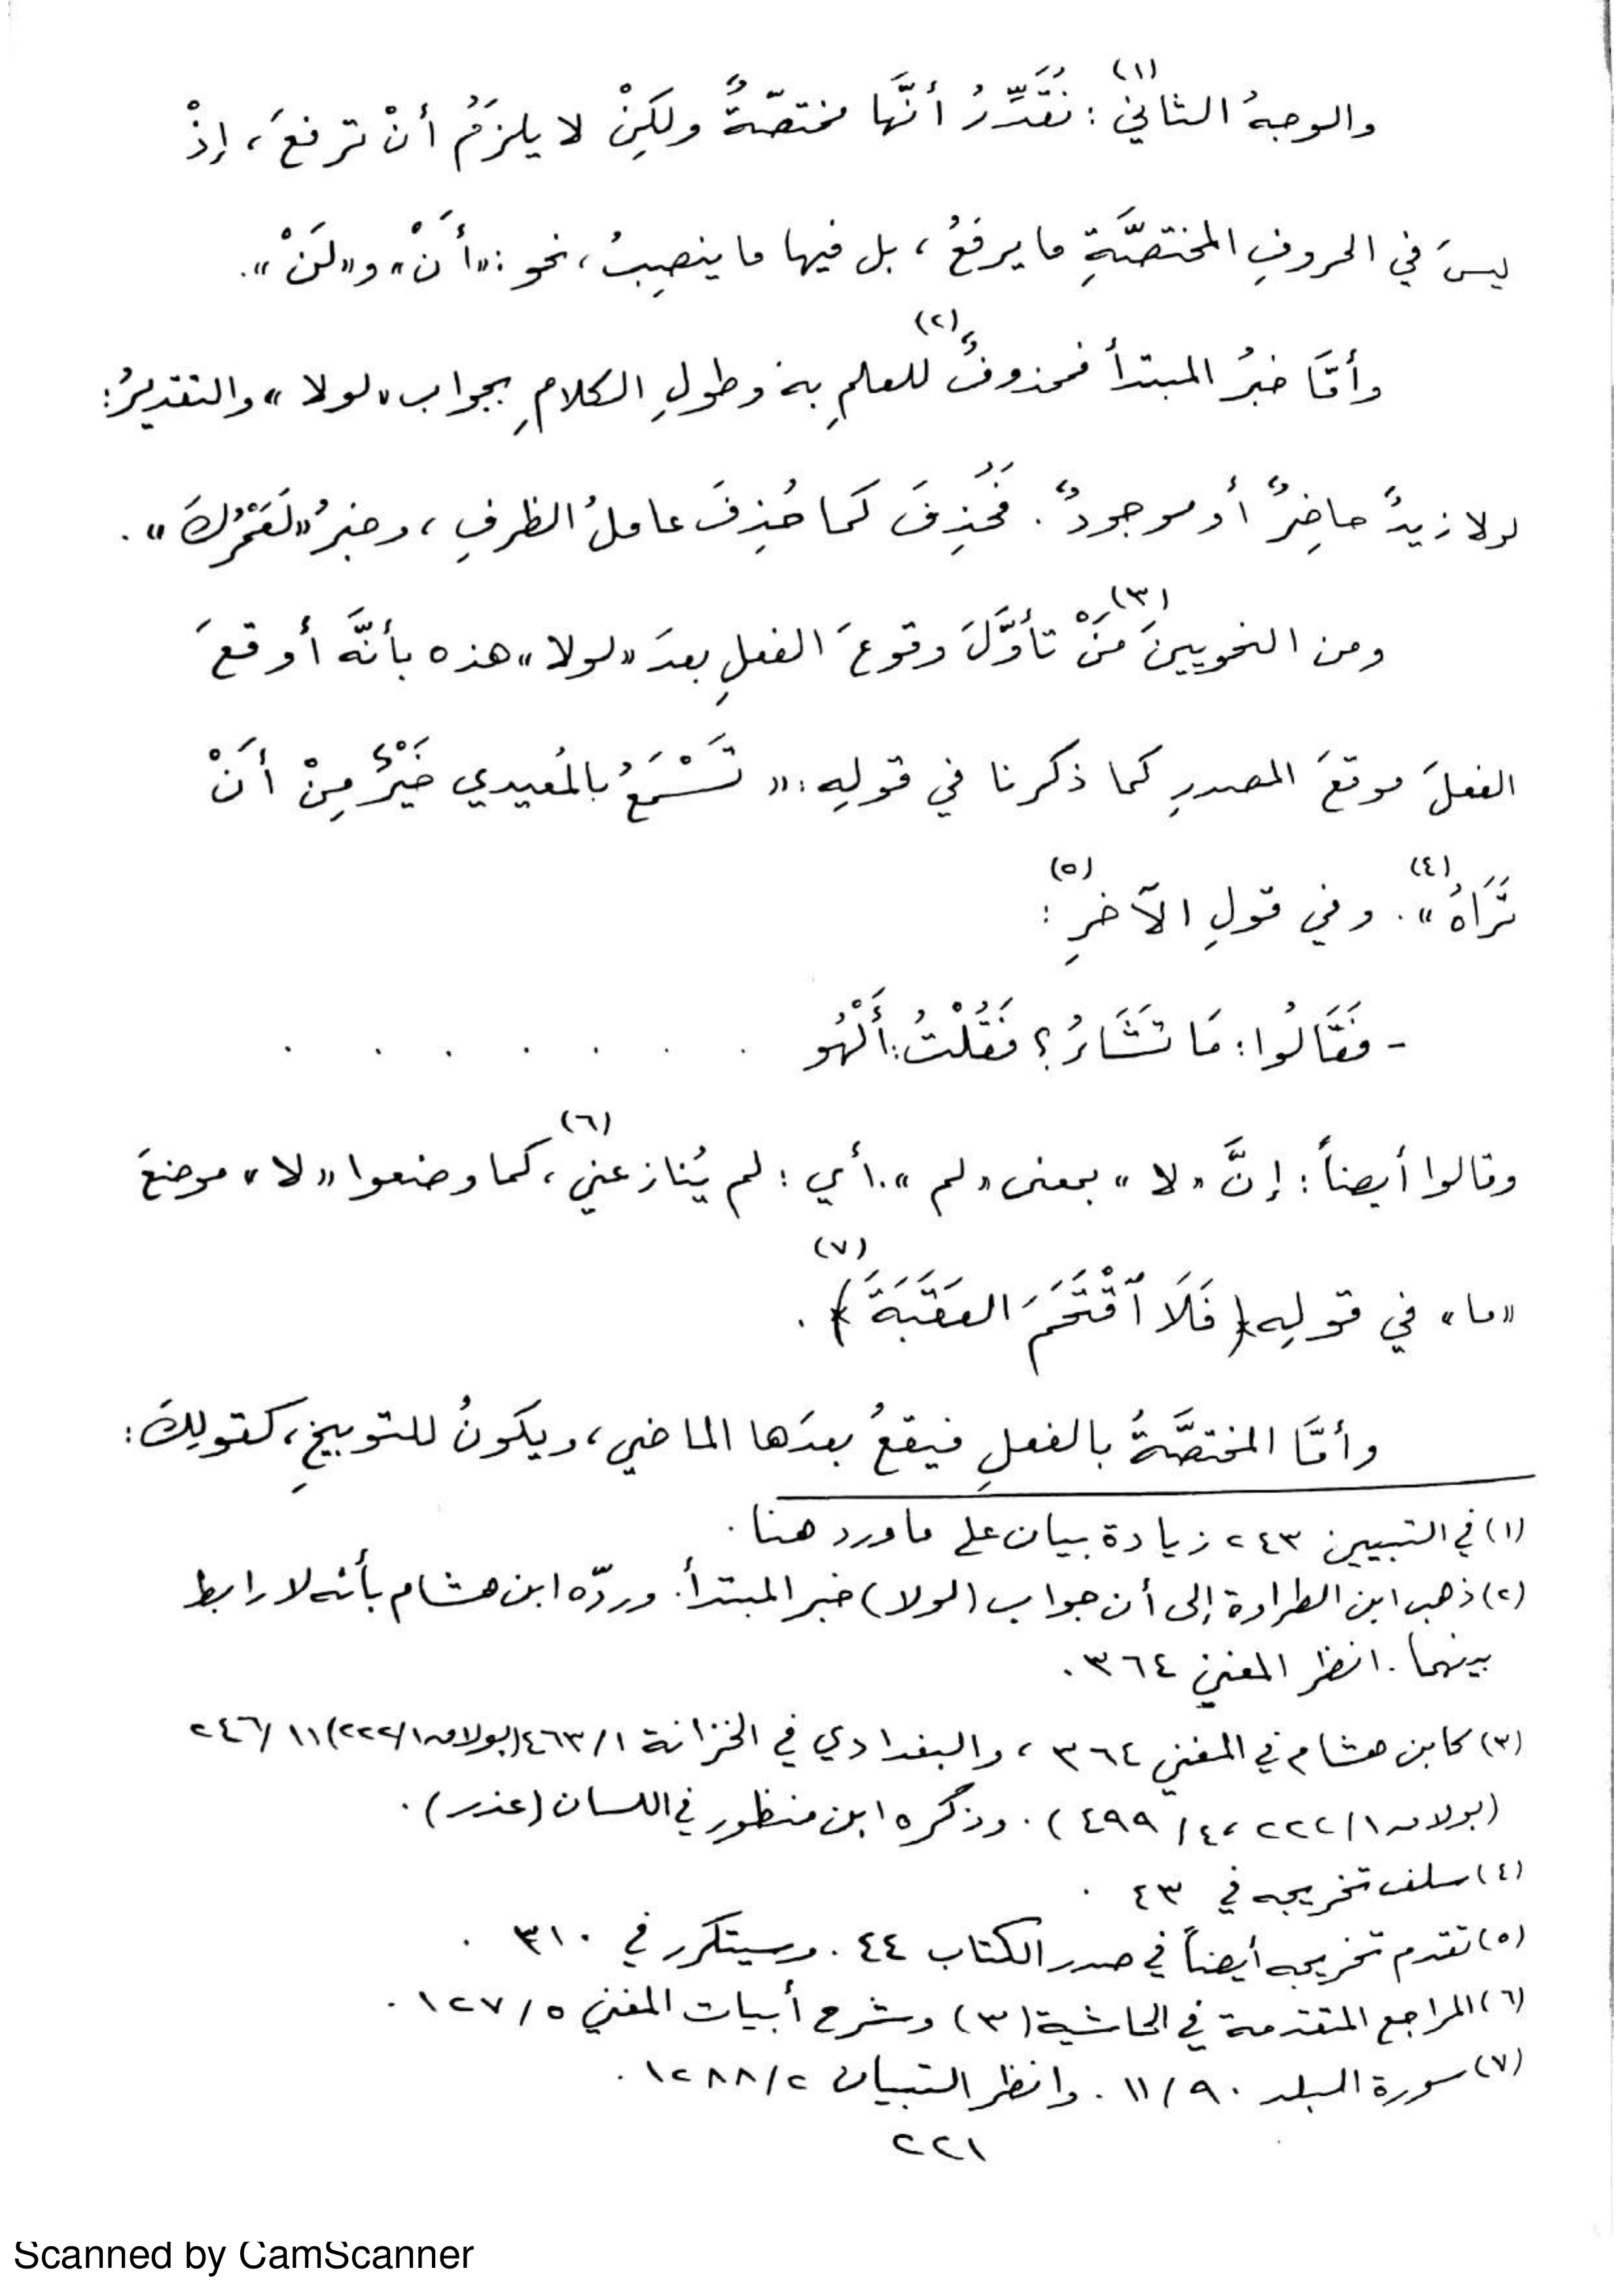 والوجهُ الثاني(١): نُقَدِّرُ أنَّها مختصّةٌ ولكِنْ لا يلزَمُ أنْ ترفعَ، إذْ
ليسَ في الحروفِ المختصَّةِ ما يرفعُ، بل فيها ما ينصِبُ، نحو: «أَنْ» و«لَنْ».
وأمَّا خبرُ المبتدأ فمحذوفٌ(٢) للعلمِ به وطولِ الكلامِ بجواب «لولا» والتقديرُ:
لولا زيدٌ حاضِرٌ أو موجودٌ. فَحُذِفَ كما حُذِفَ عاملُ الظرفِ، وخبرُ «لَعَمْرُكَ».
ومن النحويينَ(٣) مَنْ تأوَّلَ وقوعَ الفعلِ بعدَ «لولا» هذه بأنَّه أوقعَ
الفعلَ موقعَ المصدرِ كما ذكرنا في قولِه: «تَسْمَعُ بالمُعيدي خَيْرٌ مِنْ أَنْ
تَرَاهُ»(٤). وفي قولِ الآخرِ(٥):
- فَقَالُوا: مَا تَشَاءُ؟ فَقُلْتُ: أَلْهُو . . . . . . .
وقالوا أيضاً: إنَّ «لا» بمعنى «لم». أي: لم يُنازعني(٦)، كما وضعوا «لا» موضعَ
«ما» في قولِه ﴿فَلَا ٱقْتَحَمَ العَقَبَةَ﴾(٧).
وأمَّا المختصَّةُ بالفعلِ فيقعُ بعدَها الماضي، ويكونُ للتوبيخِ، كقولِكَ:
(١) في التبيين ٢٤٣ زيادة بيان على ما ورد هنا.
(٢) ذهب ابن الطراوة إلى أن جواب (لولا) خبر المبتدأ. وردّه ابن هشام بأنه لا رابط
بينهما. انظر المغني ٣٦٤.
(٣) كابن هشام في المغني ٣٦٤، والبغدادي في الخزانة ١/٤٦٣ (بولاق ١/٢٢٢) ١١/٢٤٦
(بولاق ١/٢٢٢، ٤/٤٩٩). وذكره ابن منظور في اللسان (عذر).
(٤) سلف تخريجه في ٤٣.
(٥) تقدم تخريجه أيضاً في صدر الكتاب ٤٤. وسيتكرر في ٣١٠.
(٦) المراجع المتقدمة في الحاشية (٣) وشرح أبيات المغني ٥/١٢٧.
(٧) سورة البلد ٩٠/١١. وانظر التبيان ٢/١٢٨٨.
٢٢١
Scanned by CamScanner